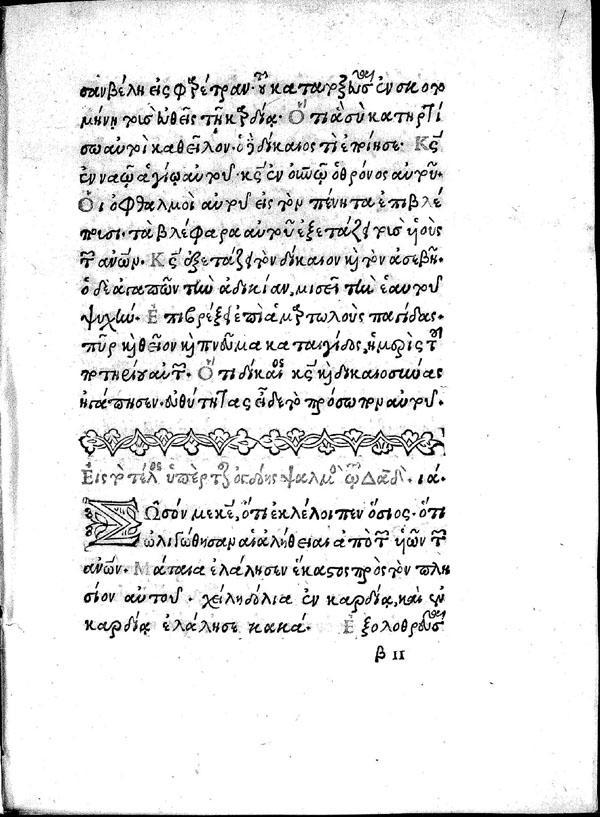 σαν βέλη εἰς φαρέτραν· τοῦ κατατοξεῦσαι ἐν σκοτο
μήνῃ τοὺς εὐθεῖς τῇ καρδίᾳ· Ὅτι ἃ σὺ κατηρτί
σω αὐτοὶ καθεῖλον· ὁ δὲ δίκαιος τί ἐποίησε· Κς
ἐν ναῷ ἁγίῳ αὐτοῦ· κς ἐν οὐνῷ ὁ θρόνος αὐτοῦ.
Οἱ ὀφθαλμοὶ αὐτοῦ εἰς τὸν πένητα ἐπιβλέ
πουσι· τὰ βλέφαρα αὐτοῦ ἐξετάζει τοὺς υἱοὺς
τῶν ἀνων· Κς ἐξετάζει τὸν δίκαιον καὶ τὸν ἀσεβῆ·
ὁ δὲ ἀγαπῶν τὴν ἀδικίαν, μισεῖ τὴν ἑαυτοῦ
ψυχήν· Ἐπιβρέξει ἐπὶ ἁμαρτωλοὺς παγίδας·
πῦρ καὶ θεῖον καὶ πνεῦμα καταιγίδος, ἡ μερὶς τοῦ
ποτηρίου αὐτῶν· Ὅτι δίκαιος κς καὶ δικαιοσύνας
ἠγάπησεν· εὐθύτητας εἶδε τὸ πρόσωπον αὐτοῦ.
Εἰς τὸ τέλος ὑπὲρ τῆς ὀγδόης ψαλμὸς τῷ Δαδ. ια.
Σῶσόν με κε, ὅτι ἐκλέλοιπεν ὅσιος· ὅτι
ὠλιγώθησαν αἱ ἀλήθειαι ἀπὸ τῶν υἱῶν τῶν
ἀνων· Μάταια ἐλάλησεν ἕκαστος πρὸς τὸν πλη
σίον αὐτοῦ· χείλη δόλια ἐν καρδίᾳ, καὶ ἐν
καρδίᾳ ἐλάλησε κακά· Ἐξολοθρεύσαι
β II